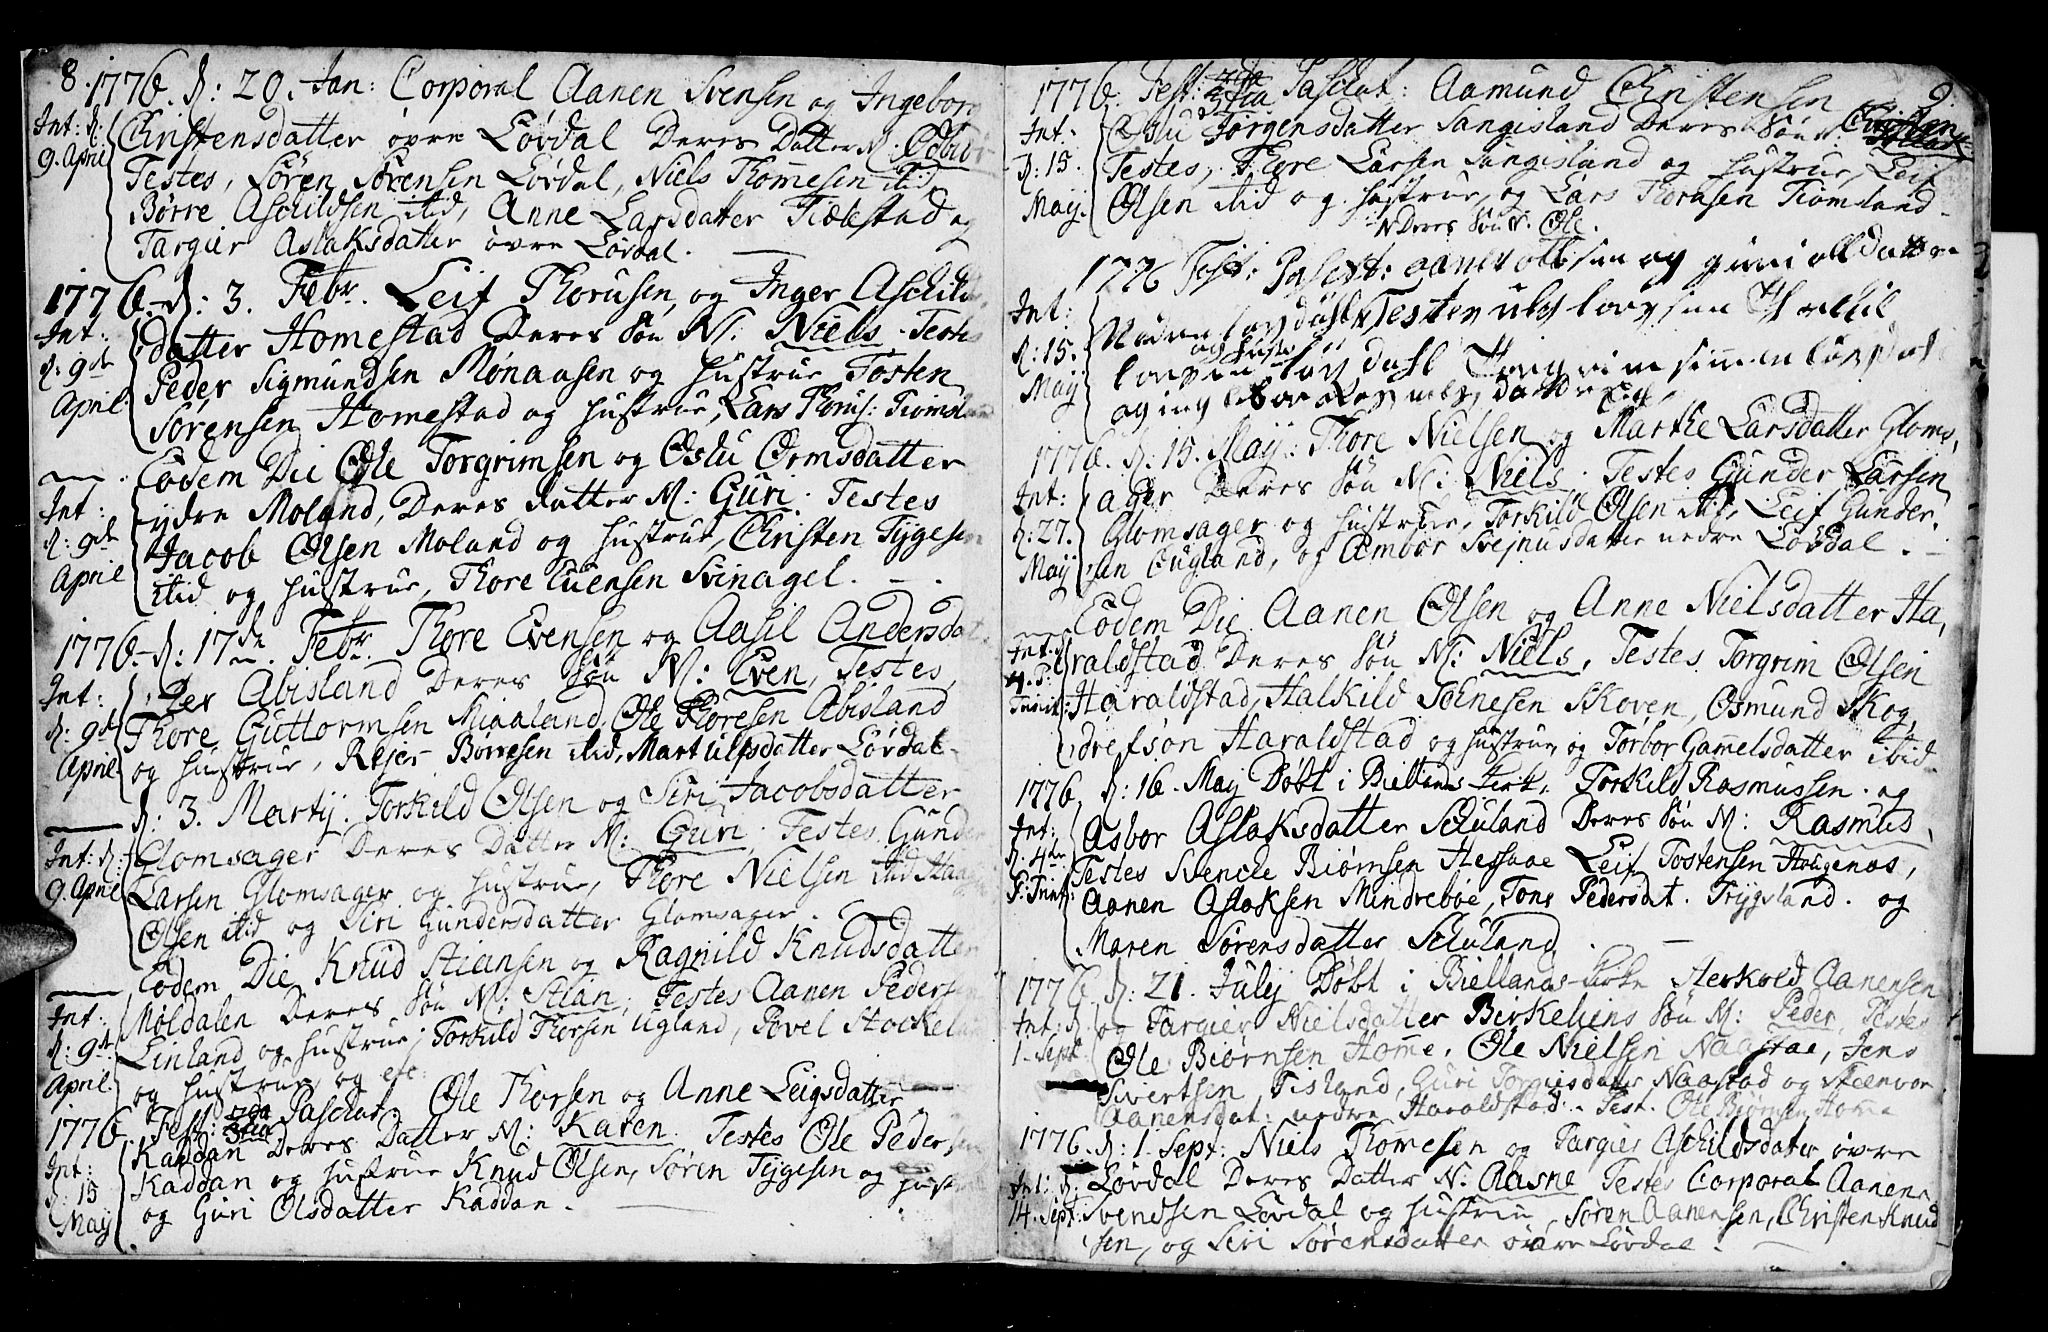 8. 1776. d: 20. Jan: Corporal Aanen Svensen og Ingeborg
Int: d: Christensdatter øvre Løvdal Deres Datter N:
9. April Testes, Søren Sørensen Løvdal, Niels Thomesen ibid,
Børre Aschildsen ibid, Anne Larsdatter Fiælestad og
Targier Aslaksdatter øvre Løvdal.
1776. d: 3. Febr. Leif Thorusen og Inger Aschilds
Int: datter Homestad Deres Søn N: Niels. Testes
d: 9de Peder Sigmundsen Monaasen og Hustrue Tosten
April Sørensen Homestad og Hustrue, Lars Thorus: Tiomsland
Eodem Die Ole Torgrimsen og Oslu Ormsdatter
Int: ydre Moland, Deres Datter N: Guri. Testes
d: 9de Jacob Olsen Moland og Hustrue, Christen Tygesen
April ibid og Hustrue, Thore Evensen Svinagel.
1776. d: 17de Febr. Thore Evensen og Aasil Andersdat
Int: ter Abisland Deres Søn N: Even, Testes,
d: 9de Thore Guttormsen Miaaland, Ole Thoresen Abisland
April og Hustrue, Rejer Borresen ibid, Mart Ulfsdatter Løvdal
d: 3. Martij. Torkild Olsen og Siri Jacobsdatter
Int: d: Glomsager Deres Datter N: Guri, Testes Gunder
9. April Larsen Glomsager og Hustrue, Thore Nielsen ibid
Olsen ibid og Siri Gundersdatter Glomsager.
Eodem Die Knud Stiansen og Ragnild Knudsdatter
Int: Moldalen Deres Søn N: Stian, Testes Aanen Pedersen
d: 9de Linland og Hustrue, Torkild Thorsen Ugland, Povel
April og Hustrue og etc.
1776. Fest: 2da Paschat: Ole Thorsen og Anne Leigsdatter
Int: Kaddan Deres Datter N: Karen. Testes Ole Pedersen
d: 15 Kaddan og Hustrue Knud Olsen, Søren Tygesen og Hustr
May og Guri Olsdatter Kaddan.
9.
1776. Fest: 2da Paschat: Aamund Christensen
Int: Oslu Jørgensdatter Sangisland Deres Søn
d: 15. Testes, Thore Larsen Sangisland og Hustrue, Leif
May. Olsen ibid og Hustrue, og Lars Thorusen Tiomsland
N Deres Søn N. Ole.
1776 Fest: Paschat: aanen ollsen og guri
Int: Nedre løvdahl Testes
d: 15. og Hustr løvdahl
May og
1776. d: 15. May: Thore Nielsen og Marthe Larsdatter Gloms
Int: ager Deres Søn N: Niels. Testes Gunder Larsen
d: 27. Glomsager og Hustrue, Torkild Olsen ibid, Leif Gunder
May sen Eugland, og Ambor Svejnusdatter nedre Løvdal.
Eodem Die Aanen Olsen og Anne Nielsdatter Ha
Int: raldstad Deres Søn N: Niels, Testes Torgrim Olsen
Trinit: Haraldstad, Halkild Tønesen Skoven, Osmund Skog
drefsøn Haraldstad og Hustrue og Torbor Gamelsdatter ibid
1776. d: 16. May Døbt i Biellands Kirke, Torkild Rasmussen. og
Int: Asbor Aslaksdatter Schuland Deres Søn N: Rasmus,
d: 4de Testes Svencke Biørnsen Hessaae Leif Tostensen Haugenæs,
F: Trinit: Aanen Aslaksen Mindreboe, Tone Pedersdat. Trygsland. og
Maren Sørensdatter Schuland.
1776 d: 21. July Døbt i Biellands Kirke Sterkold Aanensen
Int: d: og Targier Nielsdatter Birkeliens Søn N: Peder, Testes
1. Sept: Ole Biørnsen Home, Ole Nielsen Naastae, Jens
Sivertsen Fisland, Guri Torgiusdatter Naastad og Steenvor
Aanensdat: nedre Haraldstad. Test. Ole Biørnsen Home
1776. d: 1. Sept: Niels Thomesen og Targier Aschildsdater øvre
Int: d: Løvdal Deres Datter N: Aasne Testes Corporal Aanen
14. Sept: Svendsen Løvdal og Hustrue, Søren Aanensen, Christen Knud
sen, og Siri Sørensdatter øvre Løvdal.